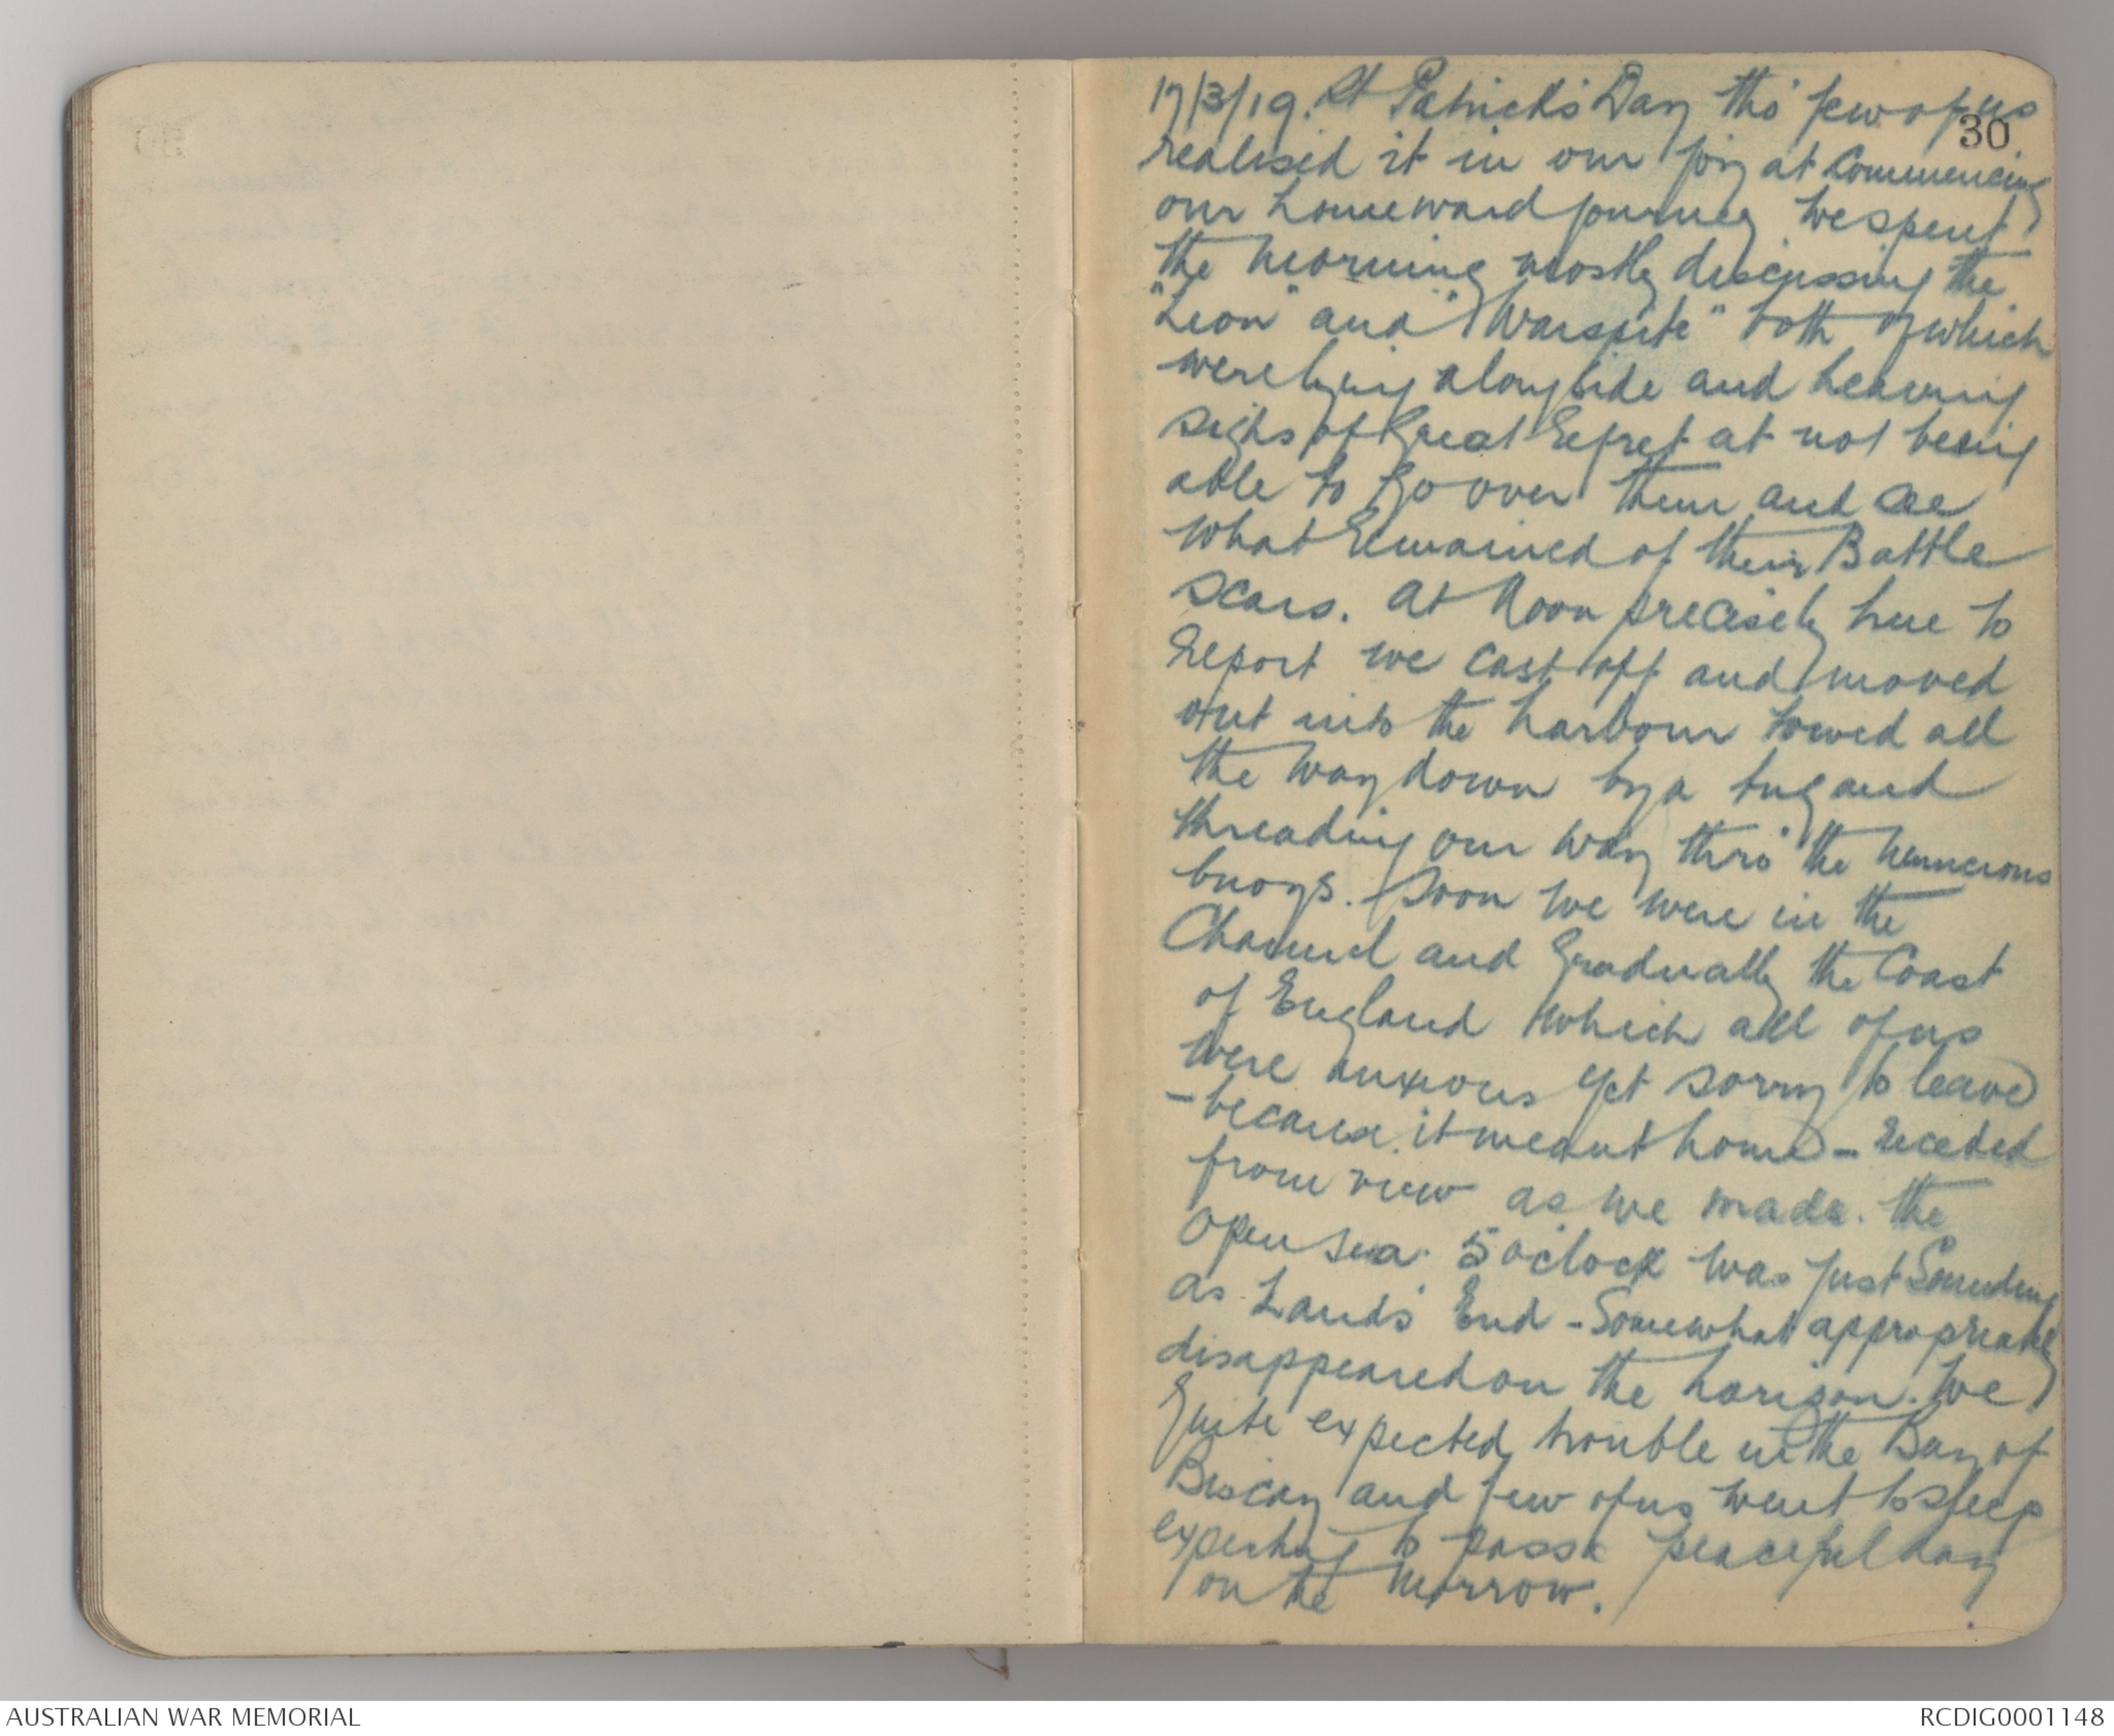 17/3/19. St Patrick's Day tho' few of us
30
realised it in our joy at Commencing
our homeward journey we spent
the morning mostly discussing the
"Lion" and "Warspite" both of which
were lying alongside and heaving
sighs of Great regret at not being
able to go over them and see
what remained of their Battle
scars. At Noon precisely hue to
report we cast off and moved
out into the harbour towed all
the way down by a tug and
threading our way thro' the numerous
buoys. Soon we were in the
Channel and Gradually the Coast
of England which all of us
were anxious yet sorry to leave
- because it meant home - receded
from view as we made the
Open sea. 5 oclock was just Sounding
as Lands' End - Somewhat appropriately
disappeared on the horizon. We
Quite expected trouble in the Bay of
Biscay and few of us went to sleep
expecting to pass a peaceful day
on the morrow.
AUSTRALIAN WAR MEMORIAL
RCDIG0001148